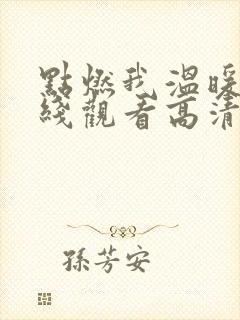 點燃我溫暖
綫觀看高清
孫芳安